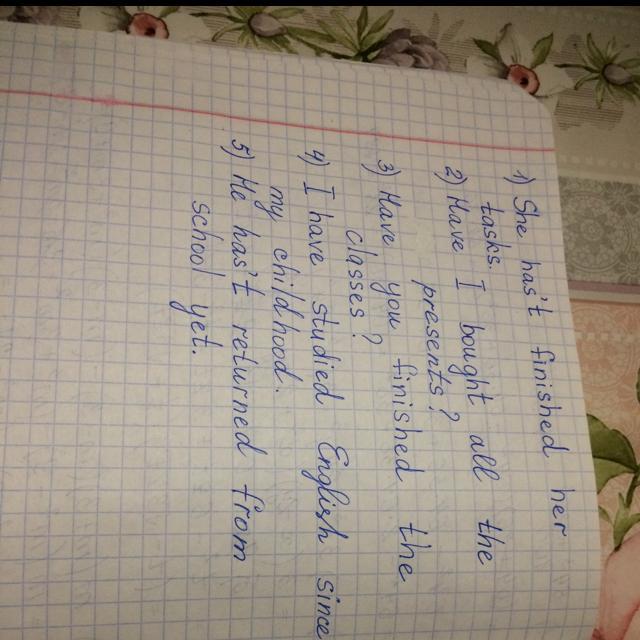 1) She has't finished her
tasks.
2) Have I bought all the
presents?
3) Have you finished the
classes?
4) I have studied English since
my childhood.
5) He has't returned from
school yet.